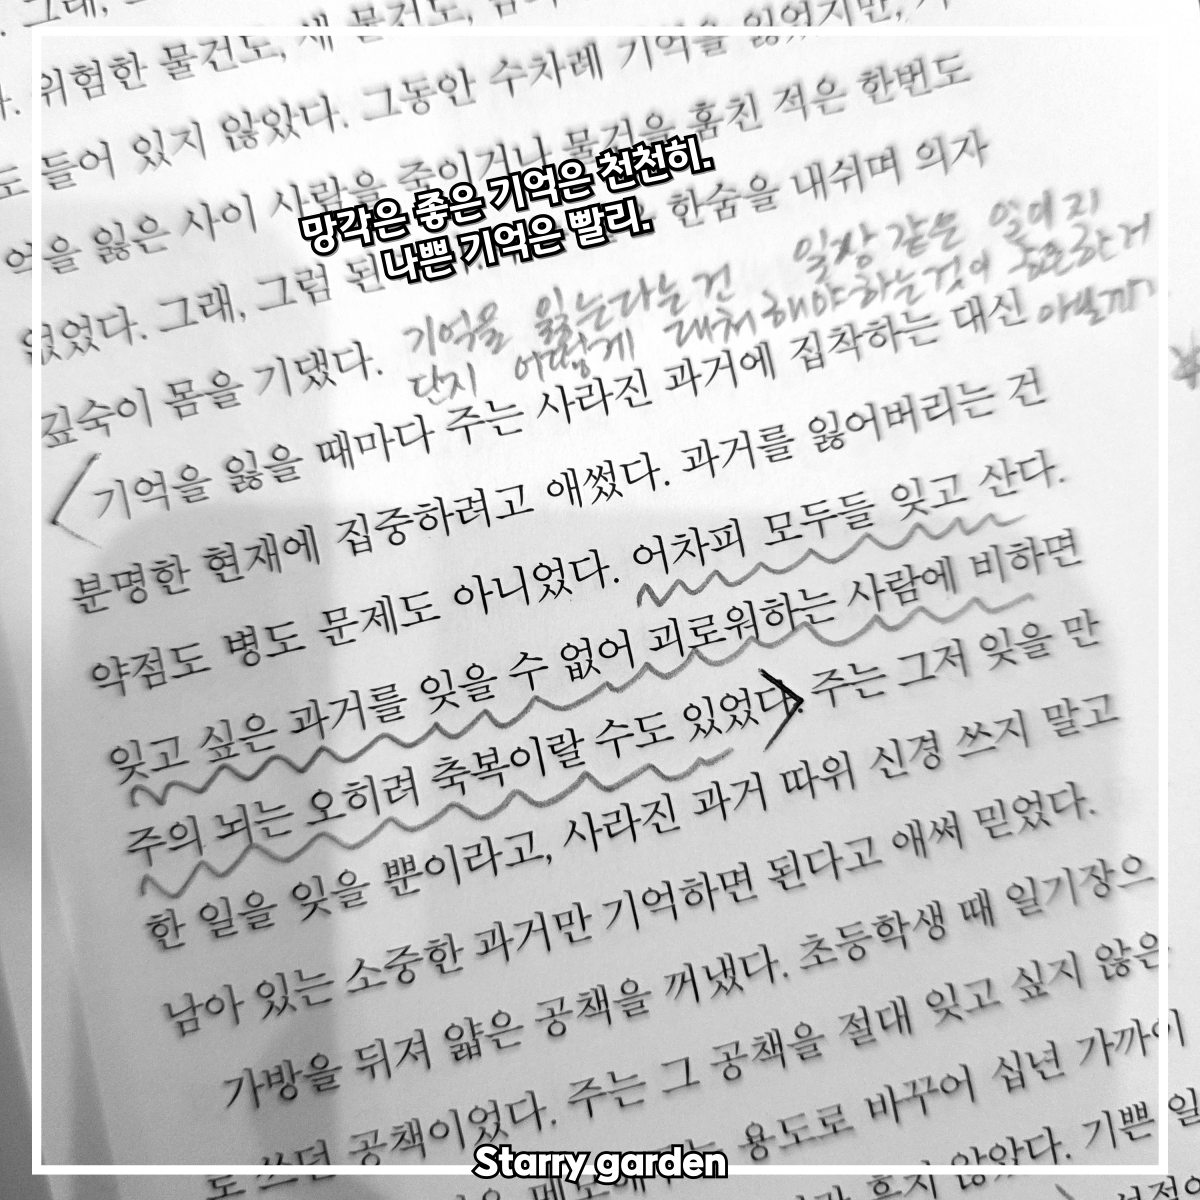 그래,
위험한 물건도, 새 물건도,
도 들어 있지 않았다. 그동안 수차례 기억을 잃었지만,
억을 잃은 사이 사람을 죽이거나 물건을 훔친 적은 한번도
없었다. 그래, 그럼 된 한숨을 내쉬며 의자
망각은 좋은 기억은 천천히.
나쁜 기억은 빨리.
깊숙이 몸을 기댔다.
기억을 잃는다는건 일상 같은 일이지
단지 어떻게 대처해야하는것이 중요한거 아닐까?
기억을 잃을 때마다 주는 사라진 과거에 집착하는 대신
분명한 현재에 집중하려고 애썼다. 과거를 잃어버리는 건
약점도 병도 문제도 아니었다. 어차피 모두들 잊고 산다.
잊고 싶은 과거를 잊을 수 없어 괴로워하는 사람에 비하면
주의 뇌는 오히려 축복이랄 수도 있었다. 주는 그저 잊을 만
한 일을 잊을 뿐이라고, 사라진 과거 따위 신경 쓰지 말고
남아 있는 소중한 과거만 기억하면 된다고 애써 믿었다.
가방을 뒤져 얇은 공책을 꺼냈다. 초등학생 때 일기장으
로 쓰던 공책이었다. 주는 그 공책을 절대 잊고 싶지 않은
용도로 바꾸어 십년 가까이
않았다. 기쁜 일
Starry garden